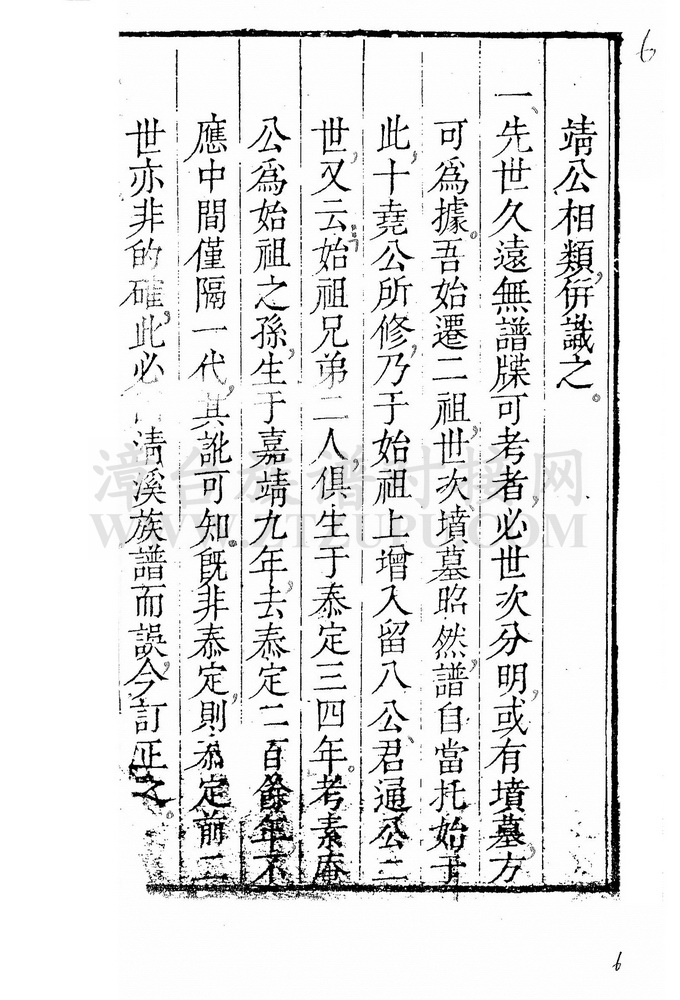 6
靖公相類，併識之。
一、先世久遠無譜牒可考者，必世次分明，或有墳墓，方
可爲據。吾始遷二祖，世次墳墓昭然，譜自當托始于
此，十堯公所修，乃于始祖上增入留八公、君通公二
世，又云始祖兄弟二人，俱生于泰定三四年。考素庵
公爲始祖之孫，生于嘉靖九年，去泰定二百餘年，不
應中間僅隔一代，其訛可知。既非泰定，則泰定前二
世亦非的確，此必清溪族譜而誤，今訂正之。
漳台族谱对接网
WWW.ZTZUPU.COM
6